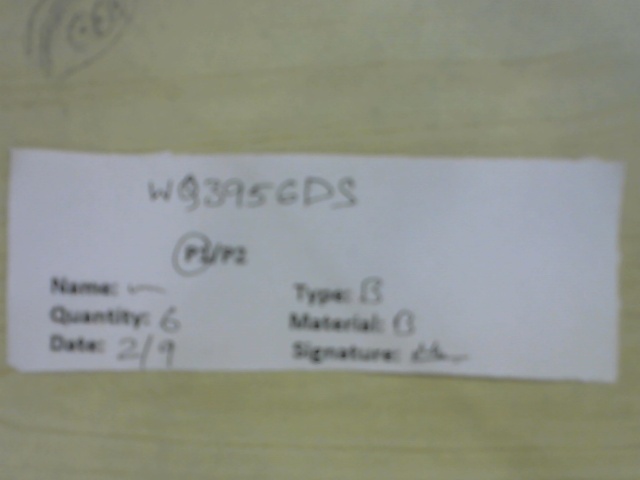 WQ3956DS
P1/P2
Name:
Quantity: 6
Date: 2/9
Type: B
Material: B
Signature: